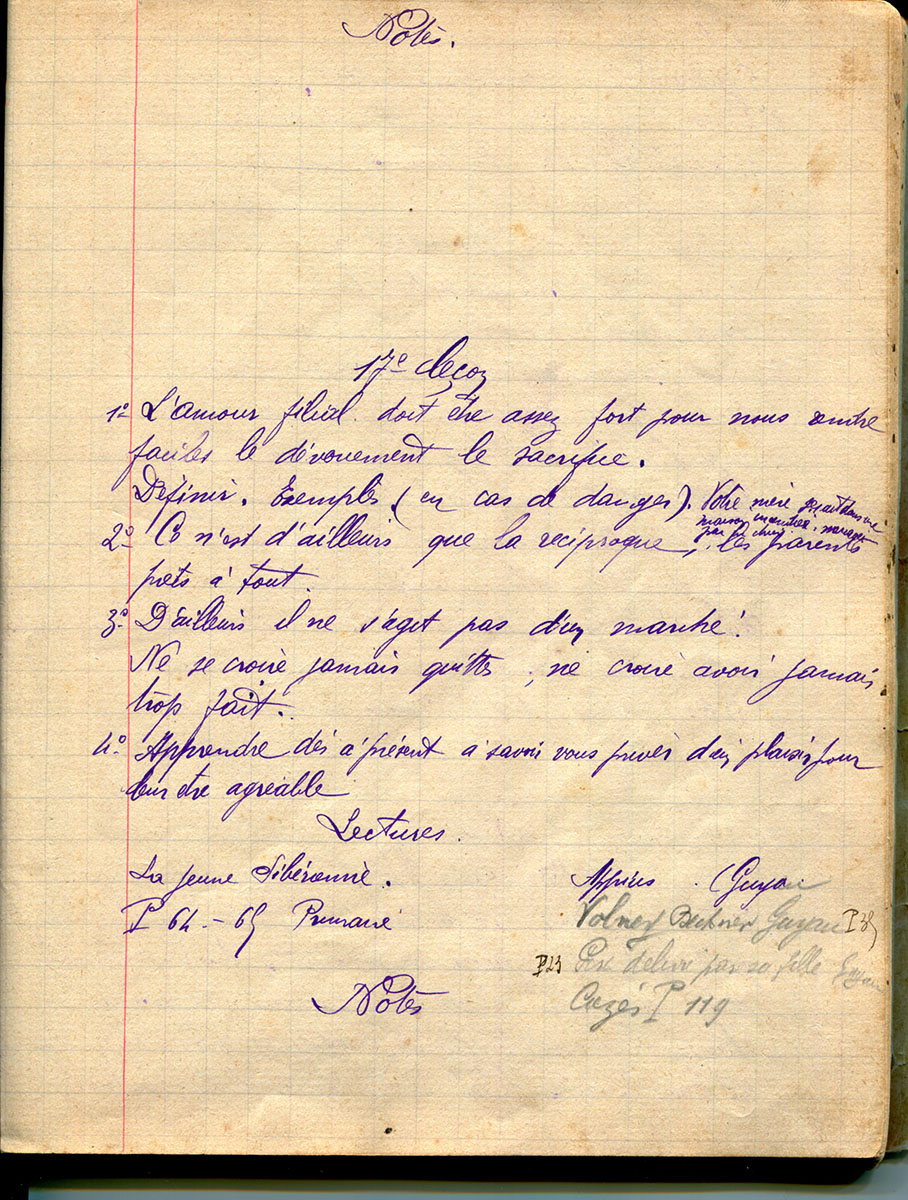 Notes.
17e Leçon
1o L'amour filial doit être assez fort pour nous rendre
faciles le dévouement le sacrifice.
Définir. Exemples (en cas de danger). Votre mère
maison
2o Ce n'est d'ailleurs que la réciproque, les parents
prêts à tout.
3o D'ailleurs il ne s'aget pas d'un marché!
Ne se croire jamais quitte, ne croire avoir jamais
trop fait.
4o Apprendre dès à présent à savoir vous priver d'un plaisir pour
leur être agréable
Lectures.
La jeune Sibérienne. Appius. (Guyau
P 64 - 65 Primaire Volney Guyau P 38
P23 délivré par sa fille Guyau
Cazes P 119
Notes